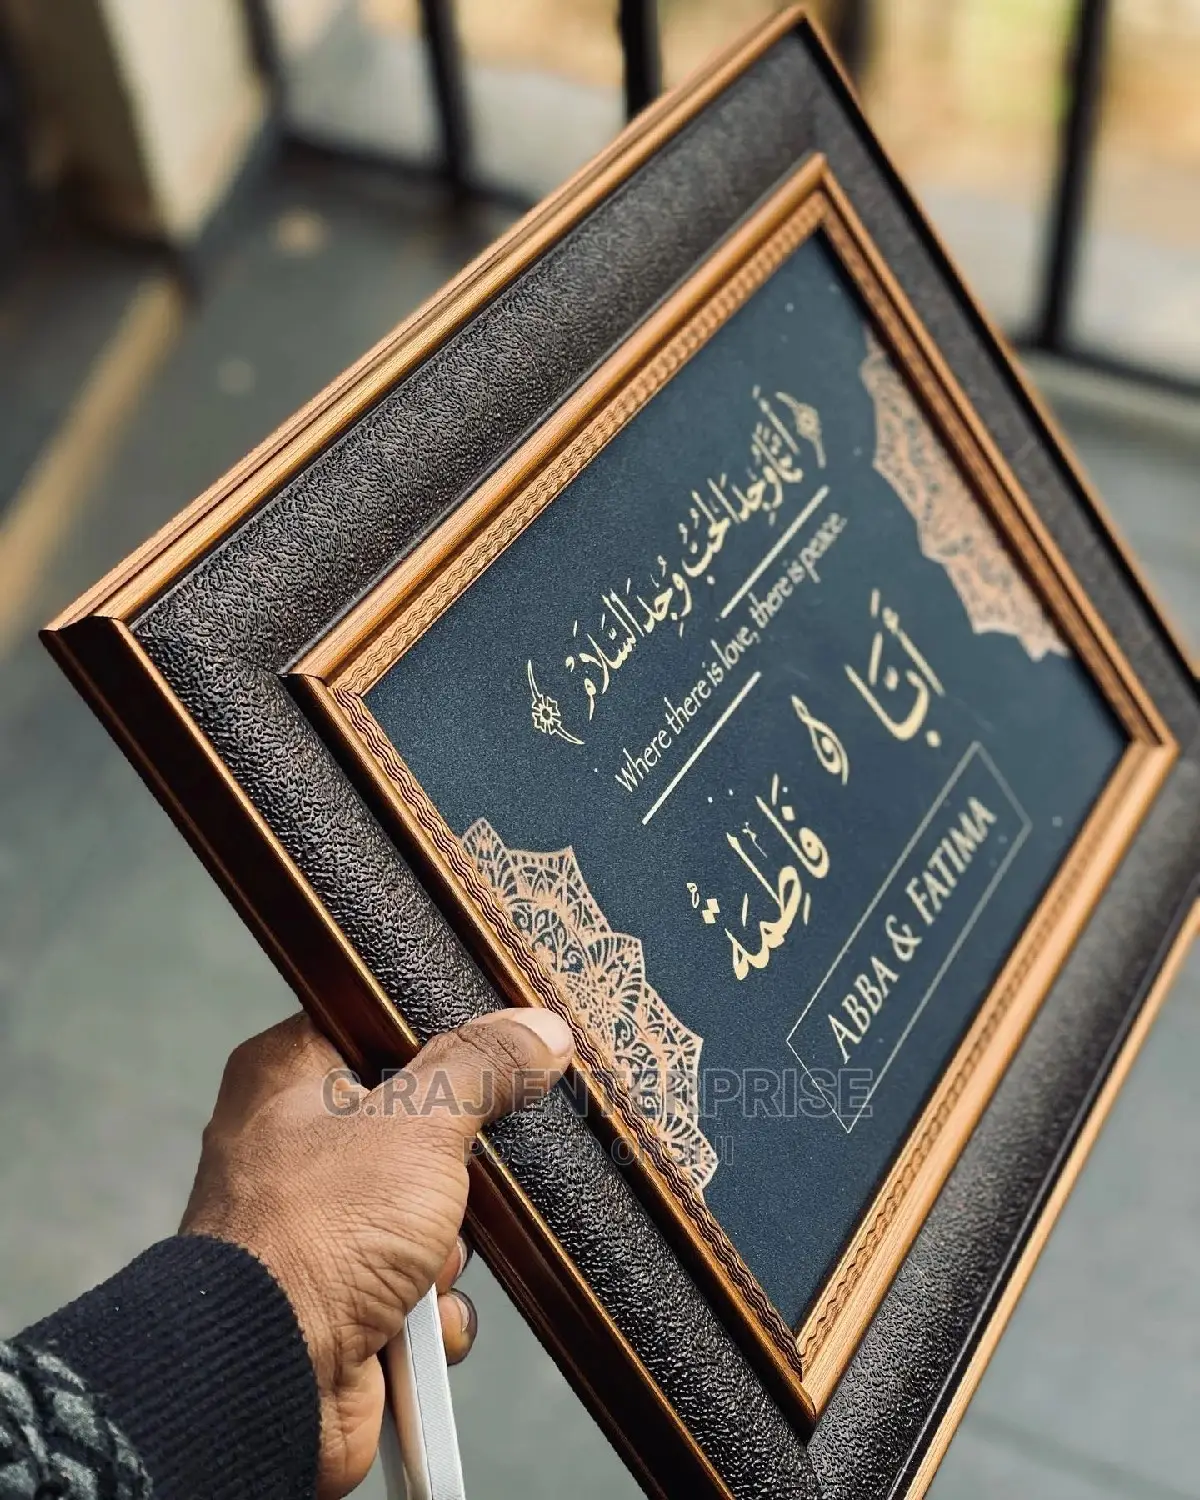 أَيْنَمَا وُجِدَ الْحُبُّ وُجِدَ السَّلَامُ
Where there is love, there is peace.
أَبَّا و فَاطِمَة
ABBA & FATIMA
G.RAJ ENTERPRISE
POSTED ON JIJI